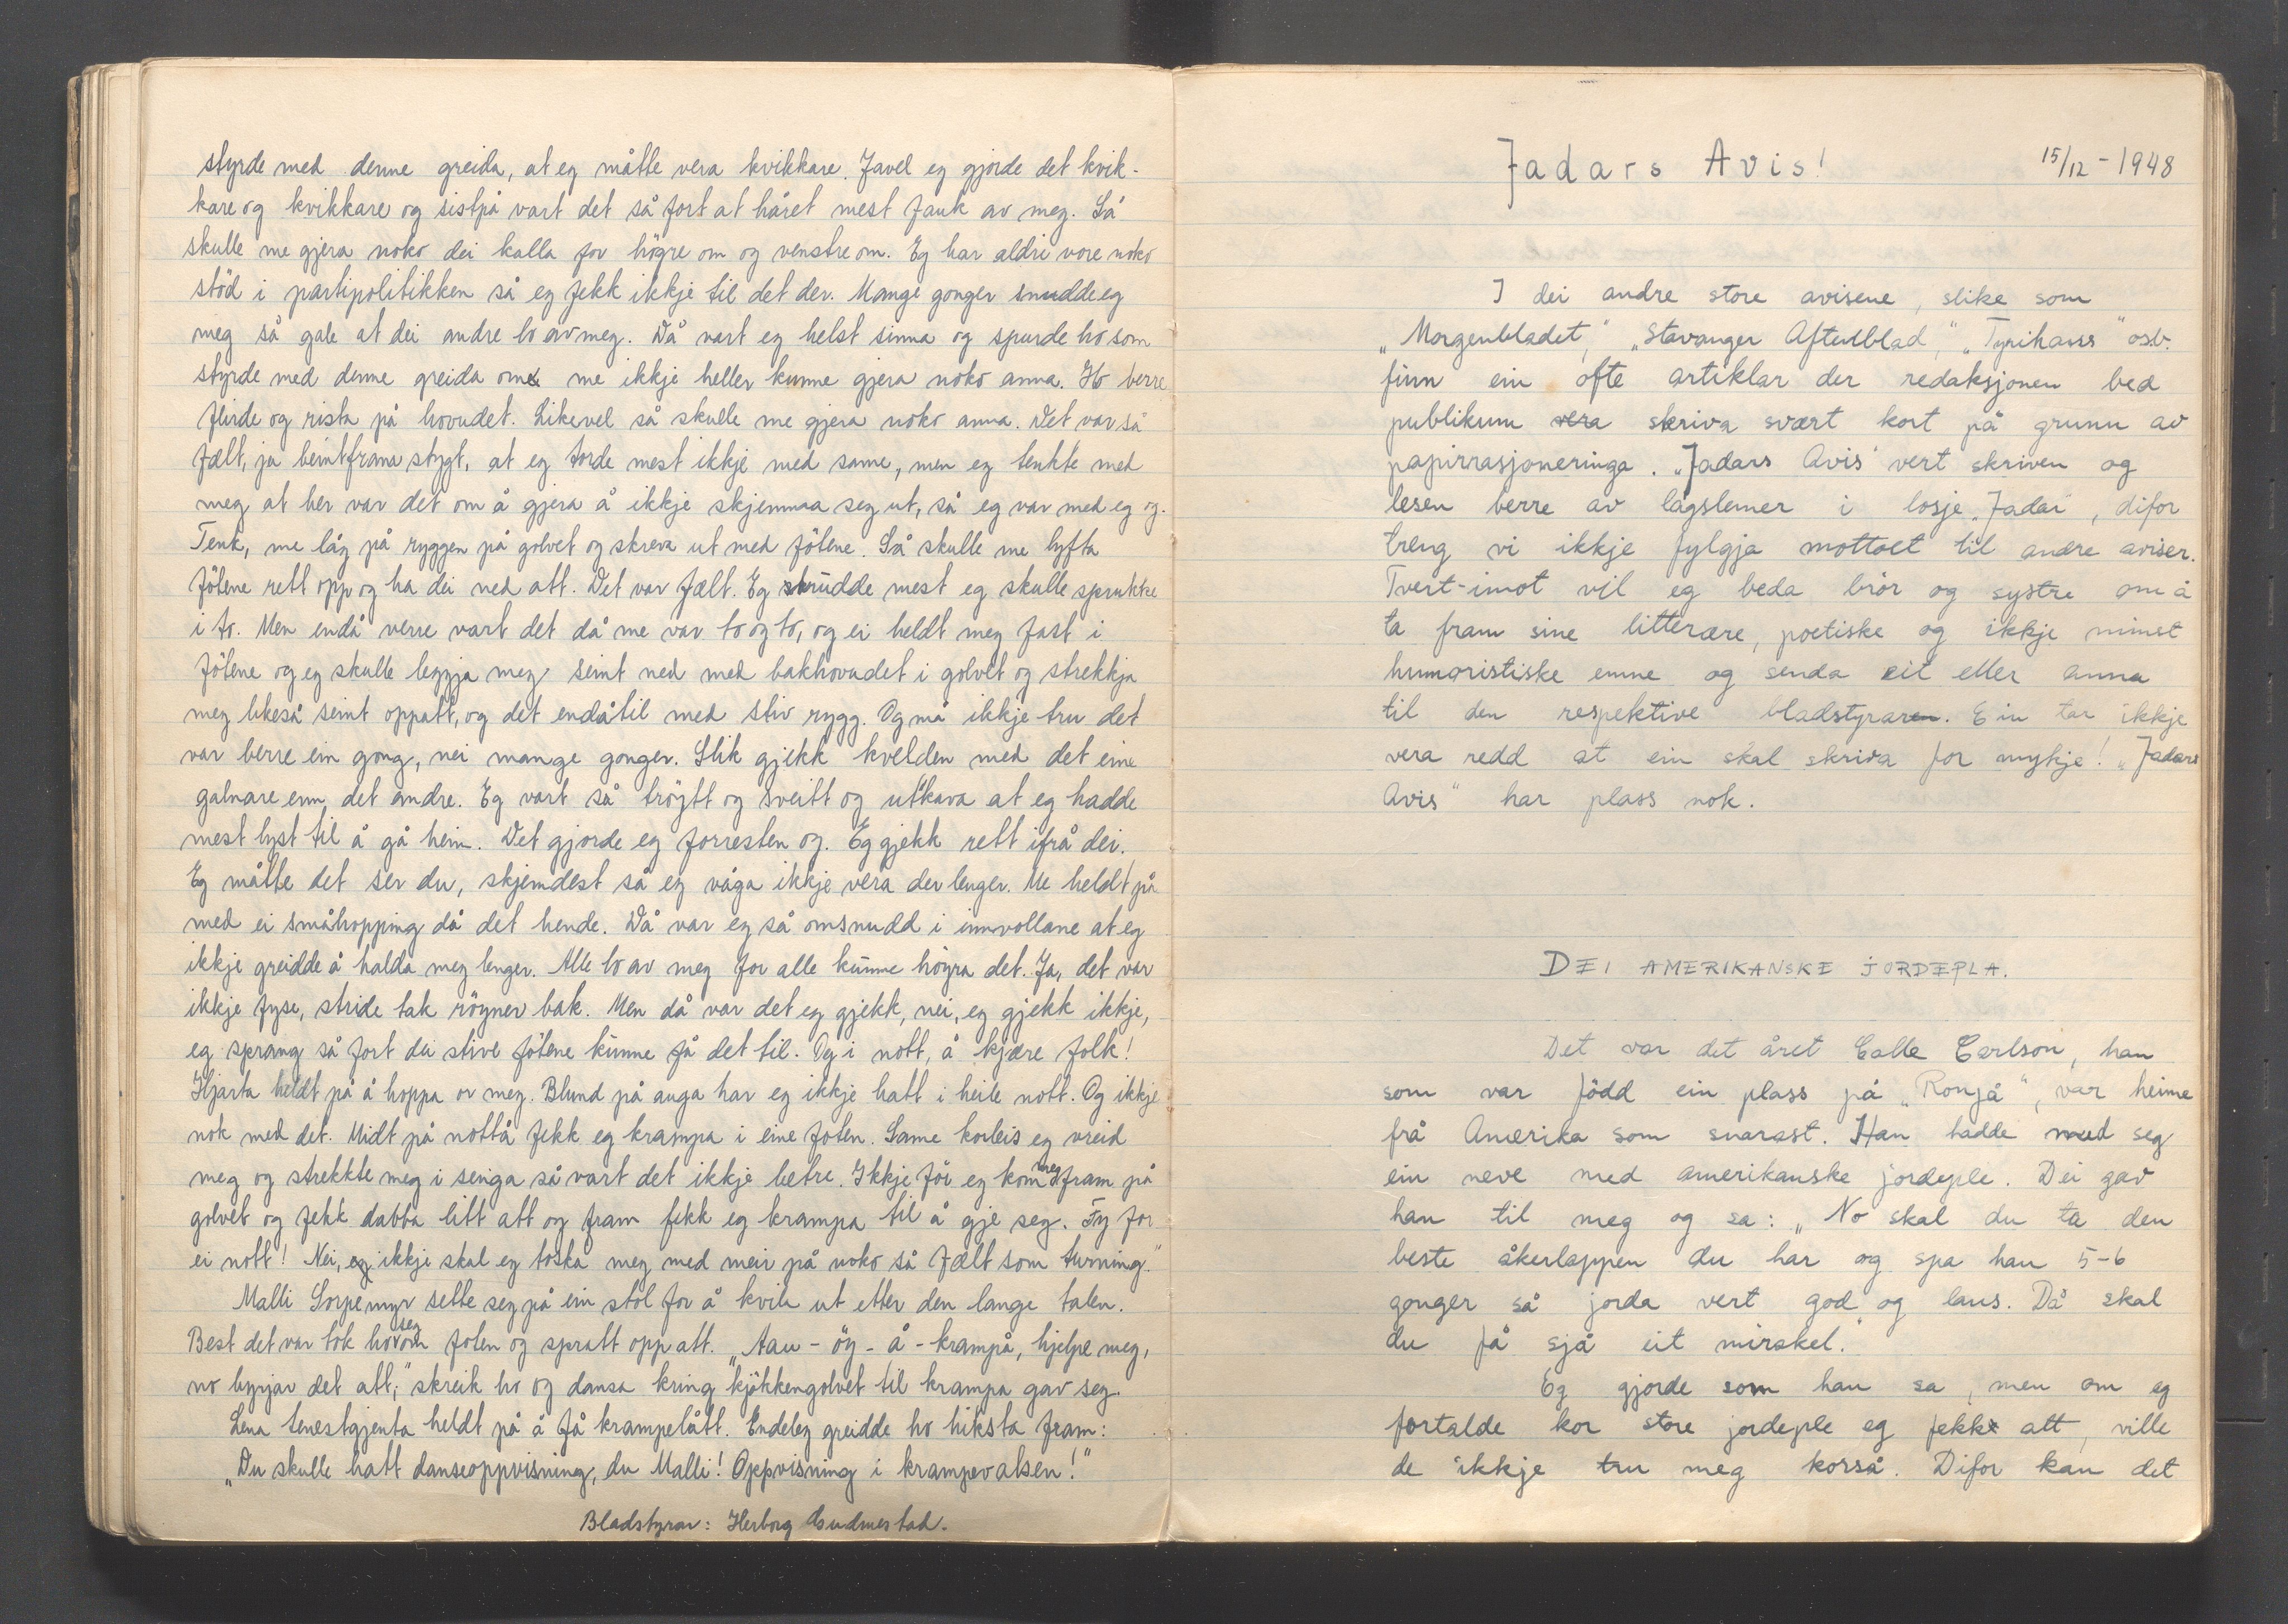 styrde med denne greida, at eg måtte vera kvikkare. Javel eg gjorde det kvik-
kare og kvikkare og sistpå vart det så fort at håret mest fauk av meg. Så
skulle me gjera noko dei kalla for högre om og venstre om. Eg har aldri vore noko
stöd i partipolitikken så eg fekk ikkje til det der. Mange gonger snudde eg
meg så gale at dei andre lo av meg. Då vart eg helst sinna og spurde ho som
styrde med denne greida om me ikkje heller kunne gjera noko anna. Ho berre
flirde og rista på hovudet. Likevel så skulle me gjera noko anna. Det var så
fælt, ja beintfram stygt, at eg torde mest ikkje med same, men eg tenkte med
meg at her var det om å gjera å ikkje skjemma seg ut, så eg var med eg og.
Tenk, me låg på ryggen på golvet og skreva ut med fötene. Så skulle me lyfta
fötene rett opp og ha dei ned att. Det var fælt. Eg trudde mest eg skulle sprukke
i to. Men endå verre vart det då me var to og to, og ei heldt meg fast i
fötene og eg skulle leggja meg seint ned med bakhovudet i golvet og strekkja
meg likeså seint oppatt, og det endåtil med stiv rygg. Og må ikkje tru det
var berre ein gong, nei mange gonger. Slik gjekk kvelden med det eine
galnare enn det andre. Eg vart så tröytt og sveitt og utkava at eg hadde
mest lyst til å gå heim. Det gjorde eg forresten og. Eg gjekk rett ifrå dei.
Eg måtte det ser du, skjemdest så eg våga ikkje vera der lenger. Me heldt på
med ei småhopping då det hende. Då var eg så omsnudd i innvollane at eg
ikkje greidde å halda meg lenger. Alle lo av meg for alle kunne höyra det. Ja, det var
ikkje fyse, stride tak röyner bak. Men då var det eg gjekk, nei, eg gjekk ikkje,
eg sprang så fort dei stive fötene kunne få det til. Og i nott, å kjære folk!
Hjarta heldt på å hoppa or meg. Blund på auga har eg ikkje hatt i heile nott. Og ikkje
nok med det. Midt på nottå fekk eg krampa i eine foten. Same korleis eg vreid
meg og strekkte meg i senga så vart det ikkje betre. Ikkje för eg kom meg fram på
golvet og fekk dabba litt att og fram fekk eg krampa til å gje seg. Fy for
ei nott! Nei, ikkje skal eg toska meg med meir på noko så fælt som turning."
Malli Sorpemyr sette seg på ein stol for å kvila ut etter den lange talen.
Best det var tok ho seg om foten og spratt opp att. „Aau - öy - å - krampå, hjelpe meg,
no byrjar det att," skreik ho og dansa kring kjökkengolvet til krampa gav seg.
Lena tenestgjenta heldt på å få krampelått. Endeleg greidde ho hiksta fram:
„Du skulle hatt danseoppvisning, du Malli! Oppvisning i krampevalsen!"
Bladstyrar: Herborg Gudmestad.
Jadars Avis!
15/12 - 1948
I dei andre store avisene, slike som
„Morgenbladet," „Stavanger Aftenblad," „Tyrihans" osb.
finn ein ofte artiklar der redaksjonen bed
publikum skriva svært kort på grunn av
papirrasjoneringa. „Jadars Avis" vert skriven og
lesen berre av lagslemer i losje „Jadar", difor
treng vi ikkje fylgja mottoet til andre aviser.
Tvert-imot vil eg beda brör og systre om å
ta fram sine litterære, poetiske og ikkje minst
humoristiske emne og senda eit eller anna
til den respektive bladstyraren. Ein tar ikkje
vera redd at ein skal skriva for mykje! „Jadars
Avis" har plass nok.
DEI AMERIKANSKE JORDEPLA.
Det var det året Calle Carlson, han
som var född ein plass på „Ronjå", var heime
frå Amerika som snarast. Han hadde med seg
ein neve med amerikanske jordeple. Dei gav
han til meg og sa: „No skal du ta den
beste åkerlappen du har og spa han 5-6
gonger så jorda vert god og laus. Då skal
du få sjå eit mirakel."
Eg gjorde som han sa, men om eg
fortalde kor store jordeple eg fekk att, ville
de ikkje tru meg korså. Difor kan det